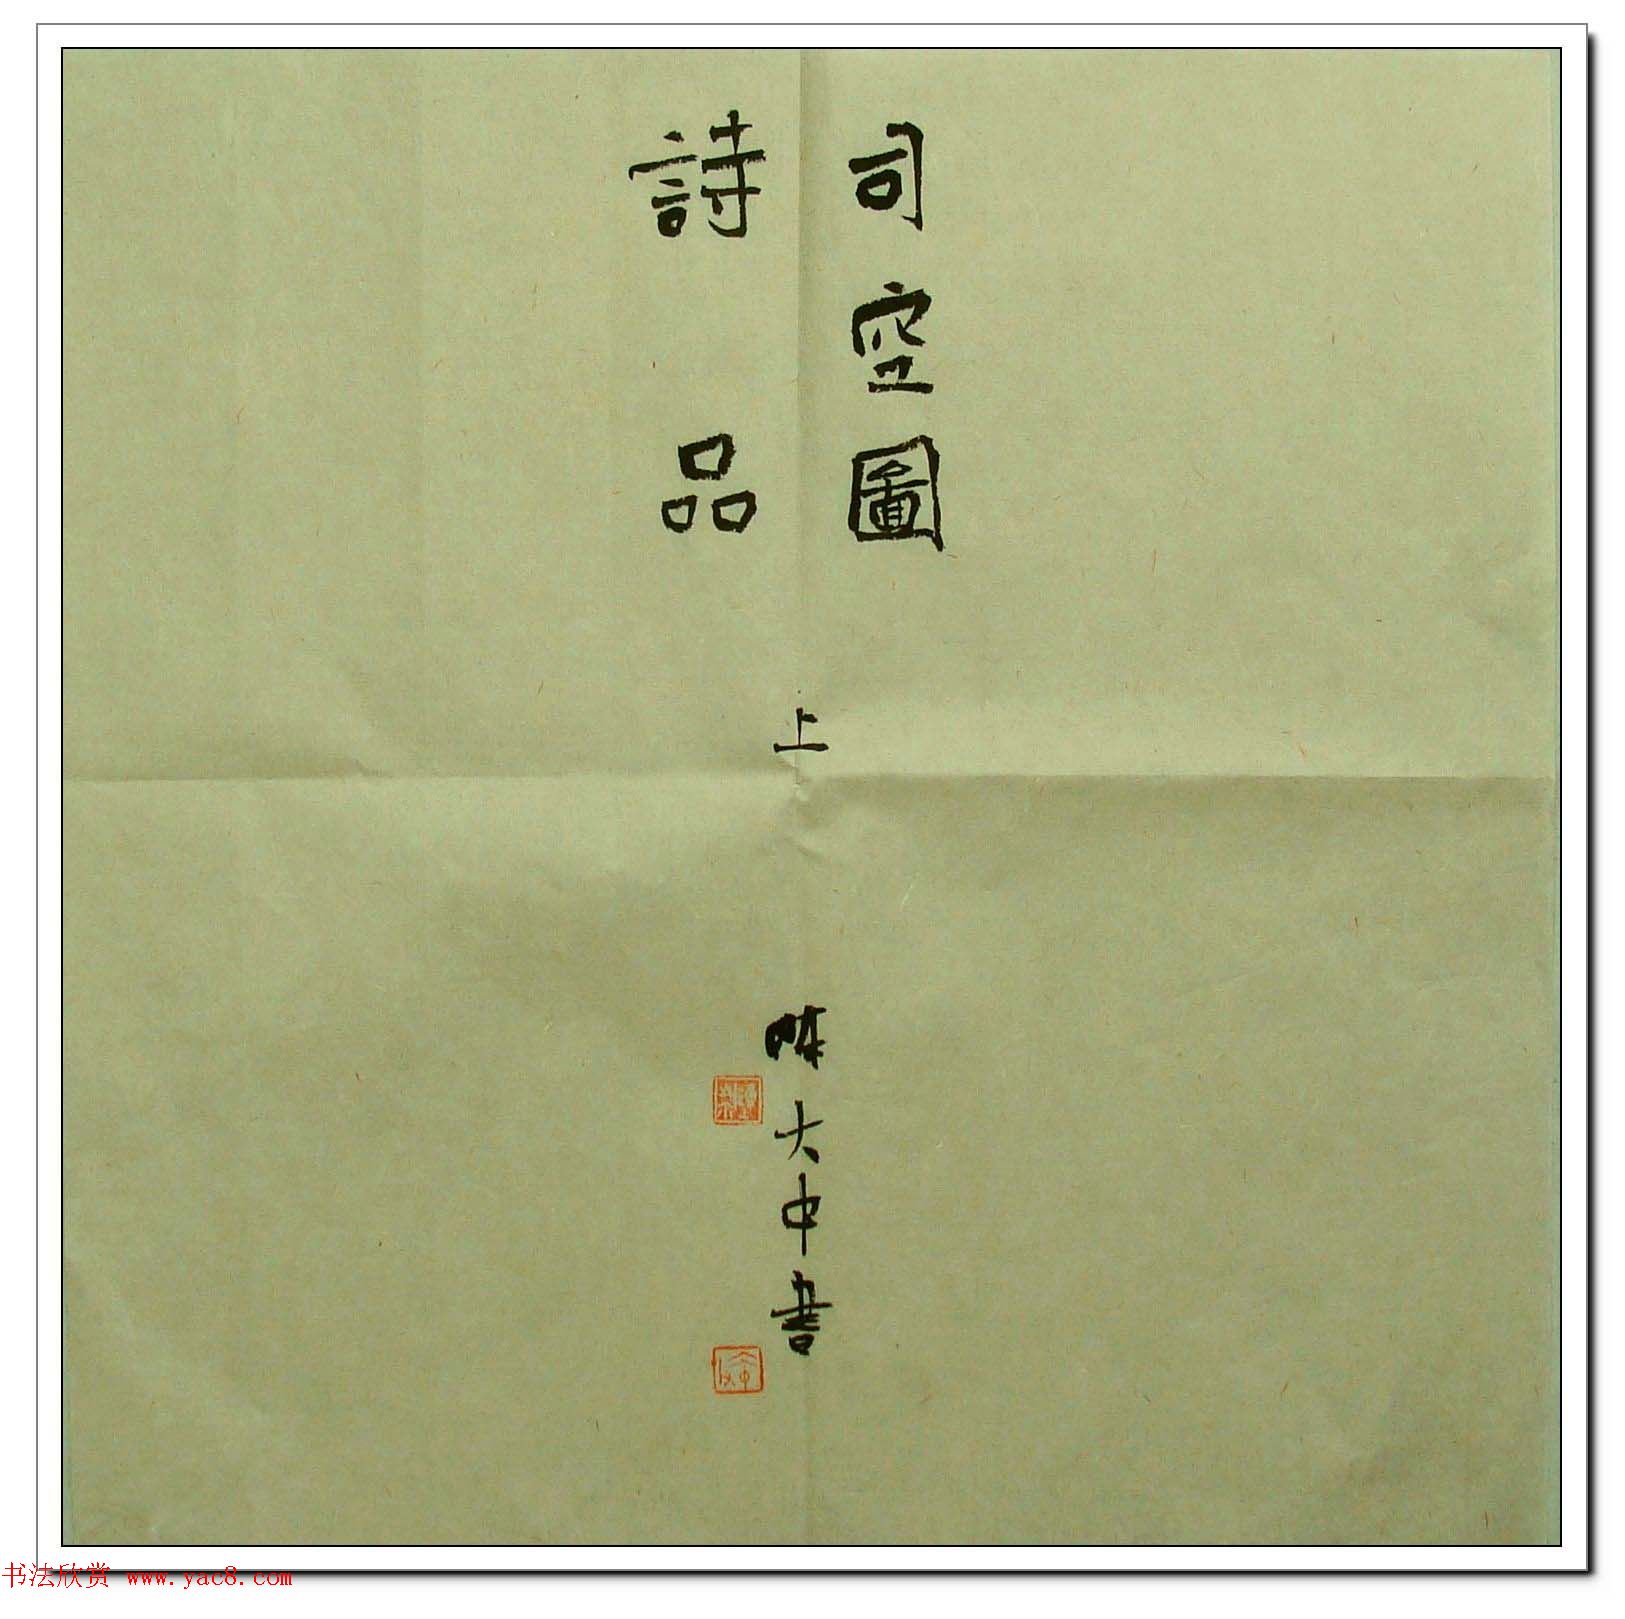 司空圖
詩品
上
陳大中書
书法欣赏 www.yac8.com